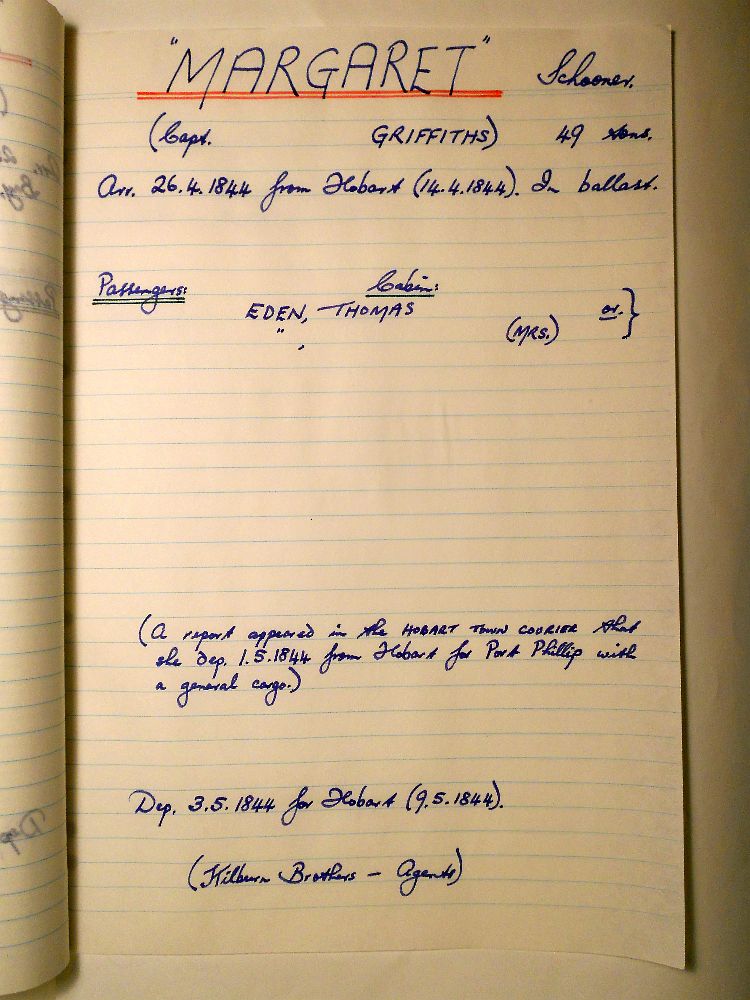 "MARGARET" Schooner.
(Capt. GRIFFITHS) 49 tons.
Arr. 26.4.1844 from Hobart (14.4.1844). In ballast.
Passengers: Cabin:
EDEN, THOMAS or.}
" , (MRS.)
(A report appeared in the HOBART TOWN COURIER that
she dep. 1.5.1844 from Hobart for Port Phillip with
a general cargo.)
Dep. 3.5.1844 for Hobart (9.5.1844).
(Kilburn Brothers – Agents)